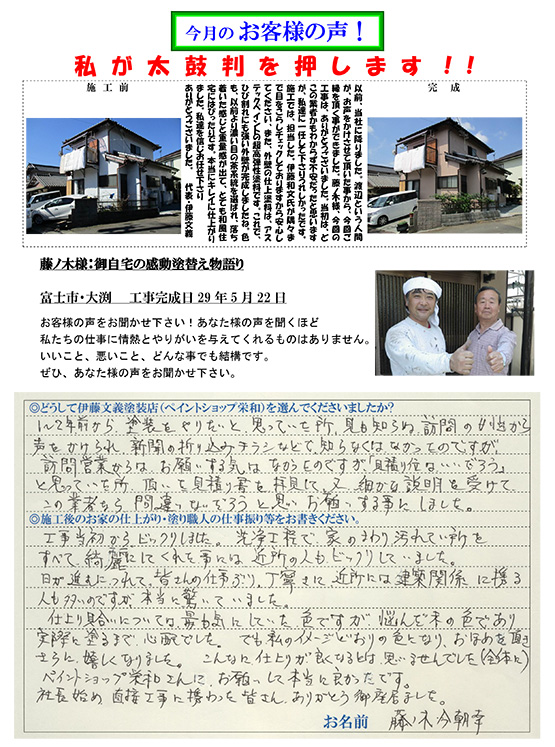 今月の お客様の声！
私が太鼓判を押します！！
施工前
完成
以前、当社に降りました、渡辺という人間
が、お声をかけさせて頂いた事から、今回ご
縁を頂く事ができました。藤ノ木様、今回の
工事は、ありがとうございました。当初は、ど
この業者かもわからず不安だったと思います
が、私達に一任して下さりうれしかったです。
施工では、担当した、伊藤和文氏が隅々ま
で目をこらしチェックしておりますから安心し
てください。また、外壁の仕上塗料は、「アス
テックペイントの超高弾性塗料です。これで、
ひび割れにも強い外壁が完成しましたね。色
も、以前より濃い目の茶系統を選ばれ、落ち
着いた感じと重量感が出て、とても和風住
宅にはぴったりです。本当にキレイに仕上がり
ました。私達を信じお任せ下さり
ありがとうございました。 代表・伊藤文義
藤ノ木様：御自宅の感動塗替え物語り
富士市・大渕 工事完成日29年5月22日
お客様の声をお聞かせ下さい！あなた様の声を聞くほど
私たちの仕事に情熱とやりがいを与えてくれるものはありません。
いいこと、悪いこと、どんな事でも結構です。
ぜひ、あなた様の声をお聞かせ下さい。
◎どうして伊藤文義塗装店（ペイントショップ栄和）を選んでくださいましたか？
1〜2年前から、塗装をやりたいと思っていた所、見も知らぬ、訪問の女の子から
声をかけられ、新聞の折り込みチラシなどで、知らなくはなかったのですが、
訪問営業からは、お願いする気はなかったのですが「見積り位なら、いいだろう」
と思っていた所、頂いた見積り書を拝見して、又、細かな説明を受けて
この業者なら間違いないだろうと思い、お願いする事にしました。
◎施工後のお家の仕上がり・塗り職人の仕事振り等をお書きください。
工事当初からビックリしました。洗浄工程で、家のまわり汚れてい所を
すべて、綺麗にしてくれた事には、近所の人もビックリしていました。
日が進むにつれて、皆さんの仕事ぶり、丁寧さに、近所には建築関係に携る
人も多いのですが、本当に驚いていました。
仕上り具合いについては、最も気にしていた、色ですが、悩んだ末の色であり、
実際に塗るまで、心配でした。でも私のイメージどおりの色となり、おほめを頂き
さらに、嬉しくなりました。こんなに仕上りが良くなるとは、思いませんでした（全体に）
ペイントショップ栄和さんに、お願いして本当に良かったです。
社長始め、直接工事に携わった皆さん、ありがとう御座居ました。
お名前 藤ノ木今朝幸